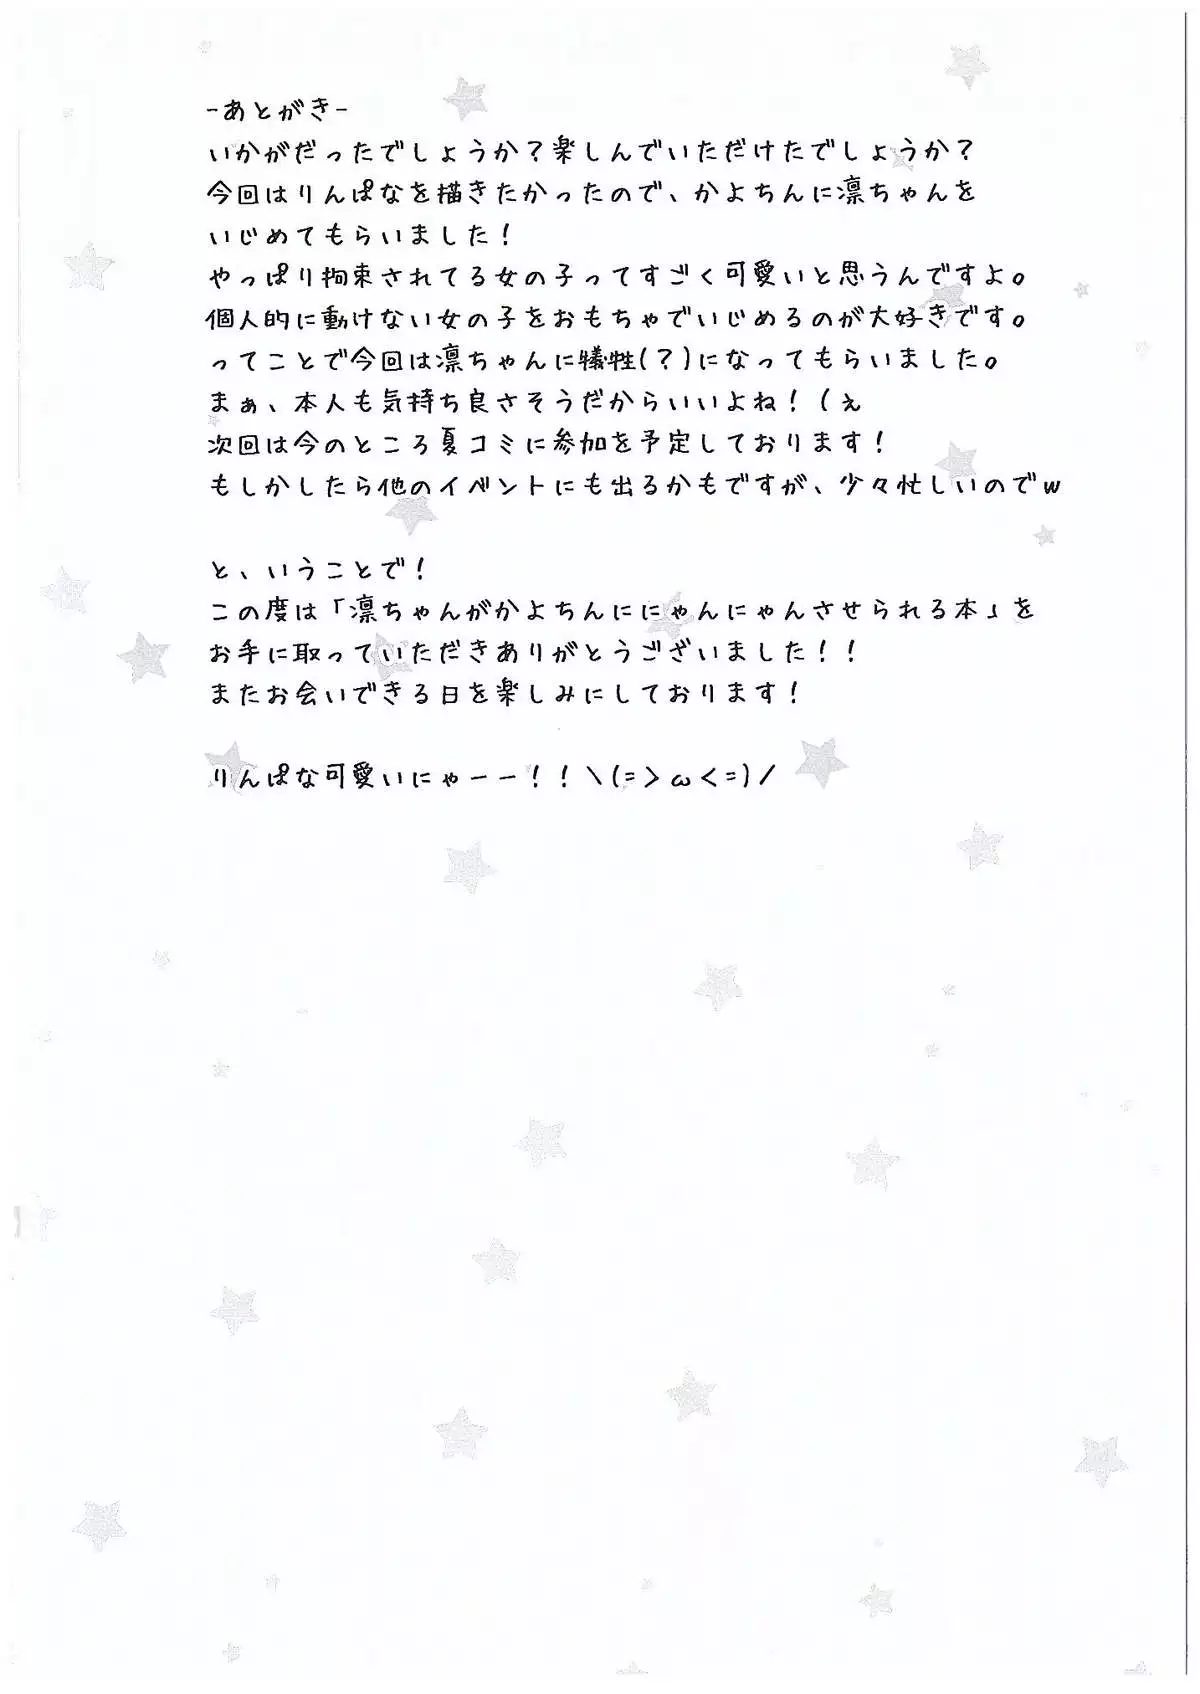 -あとがき-
いかがだったでしょうか?楽しんでいただけたでしょうか?
今回はりんぱなを描きたかったので、かよちんに凛ちゃんを
いじめてもらいました!
やっぱり拘束されてる女の子ってすごく可愛いと思うんですよ。
個人的に動けない女の子をおもちゃでいじめるのが大好きです。
ってことで今回は凛ちゃんに犠牲(?)になってもらいました。
まぁ、本人も気持ち良さそうだからいいよね!(ぇ
次回は今のところ夏コミに参加を予定しております!
もしかしたら他のイベントにも出るかもですが、少々忙しいのでw
と、いうことで!
この度は「凛ちゃんがかよちんににゃんにゃんさせられる本」を
お手に取っていただきありがとうございました!!
またお会いできる日を楽しみにしております!
りんぱな可愛いにゃーー!!\(=>ω<=)/